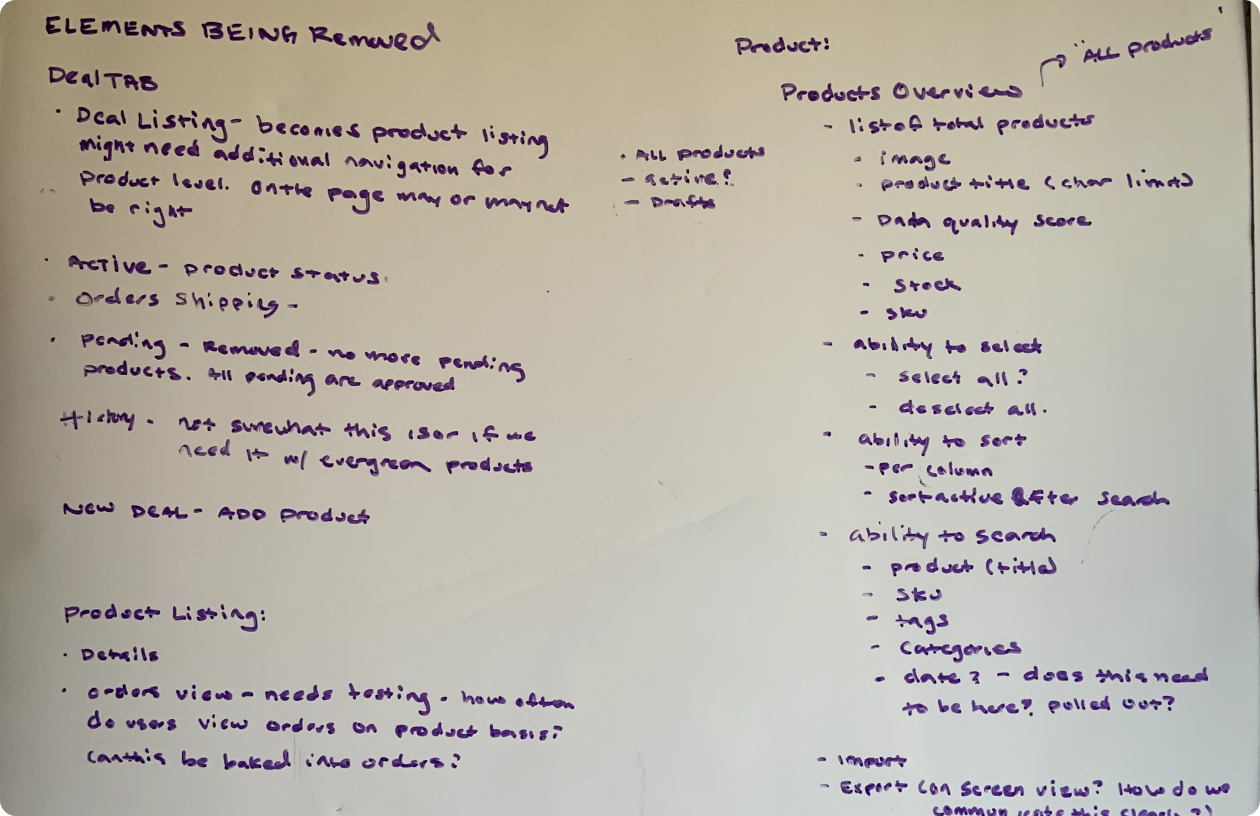 ELEMENTS BEING Removed
Deal TAB
· Deal Listing - becomes product listing
might need additional navigation for
product level. On the page may or may not
be right
· Active - product status.
· Orders Shipping -
· Pending - Removed - no more pending
products. All pending are approved
History - not sure what this is or if we
need it w/ evergreen products
NEW DEAL - ADD product
Product Listing:
· Details
· orders view - needs testing - how often
do users view orders on product basis?
Can this be baked into orders?
· ALL products
- active?
- Drafts
Product:
"ALL products"
Products Overview
- list of total products
- image
- product title (char limit)
- Data quality score
- price
- Stock
- SKU
- ability to select
- select all?
- deselect all.
- ability to sort
- per column
- sort active after search
- ability to search
- product (title)
- SKU
- tags
- Categories
- date? - does this need
to be here? pulled out?
- Import
- Export (on screen view? How do we
communicate this clearly?)